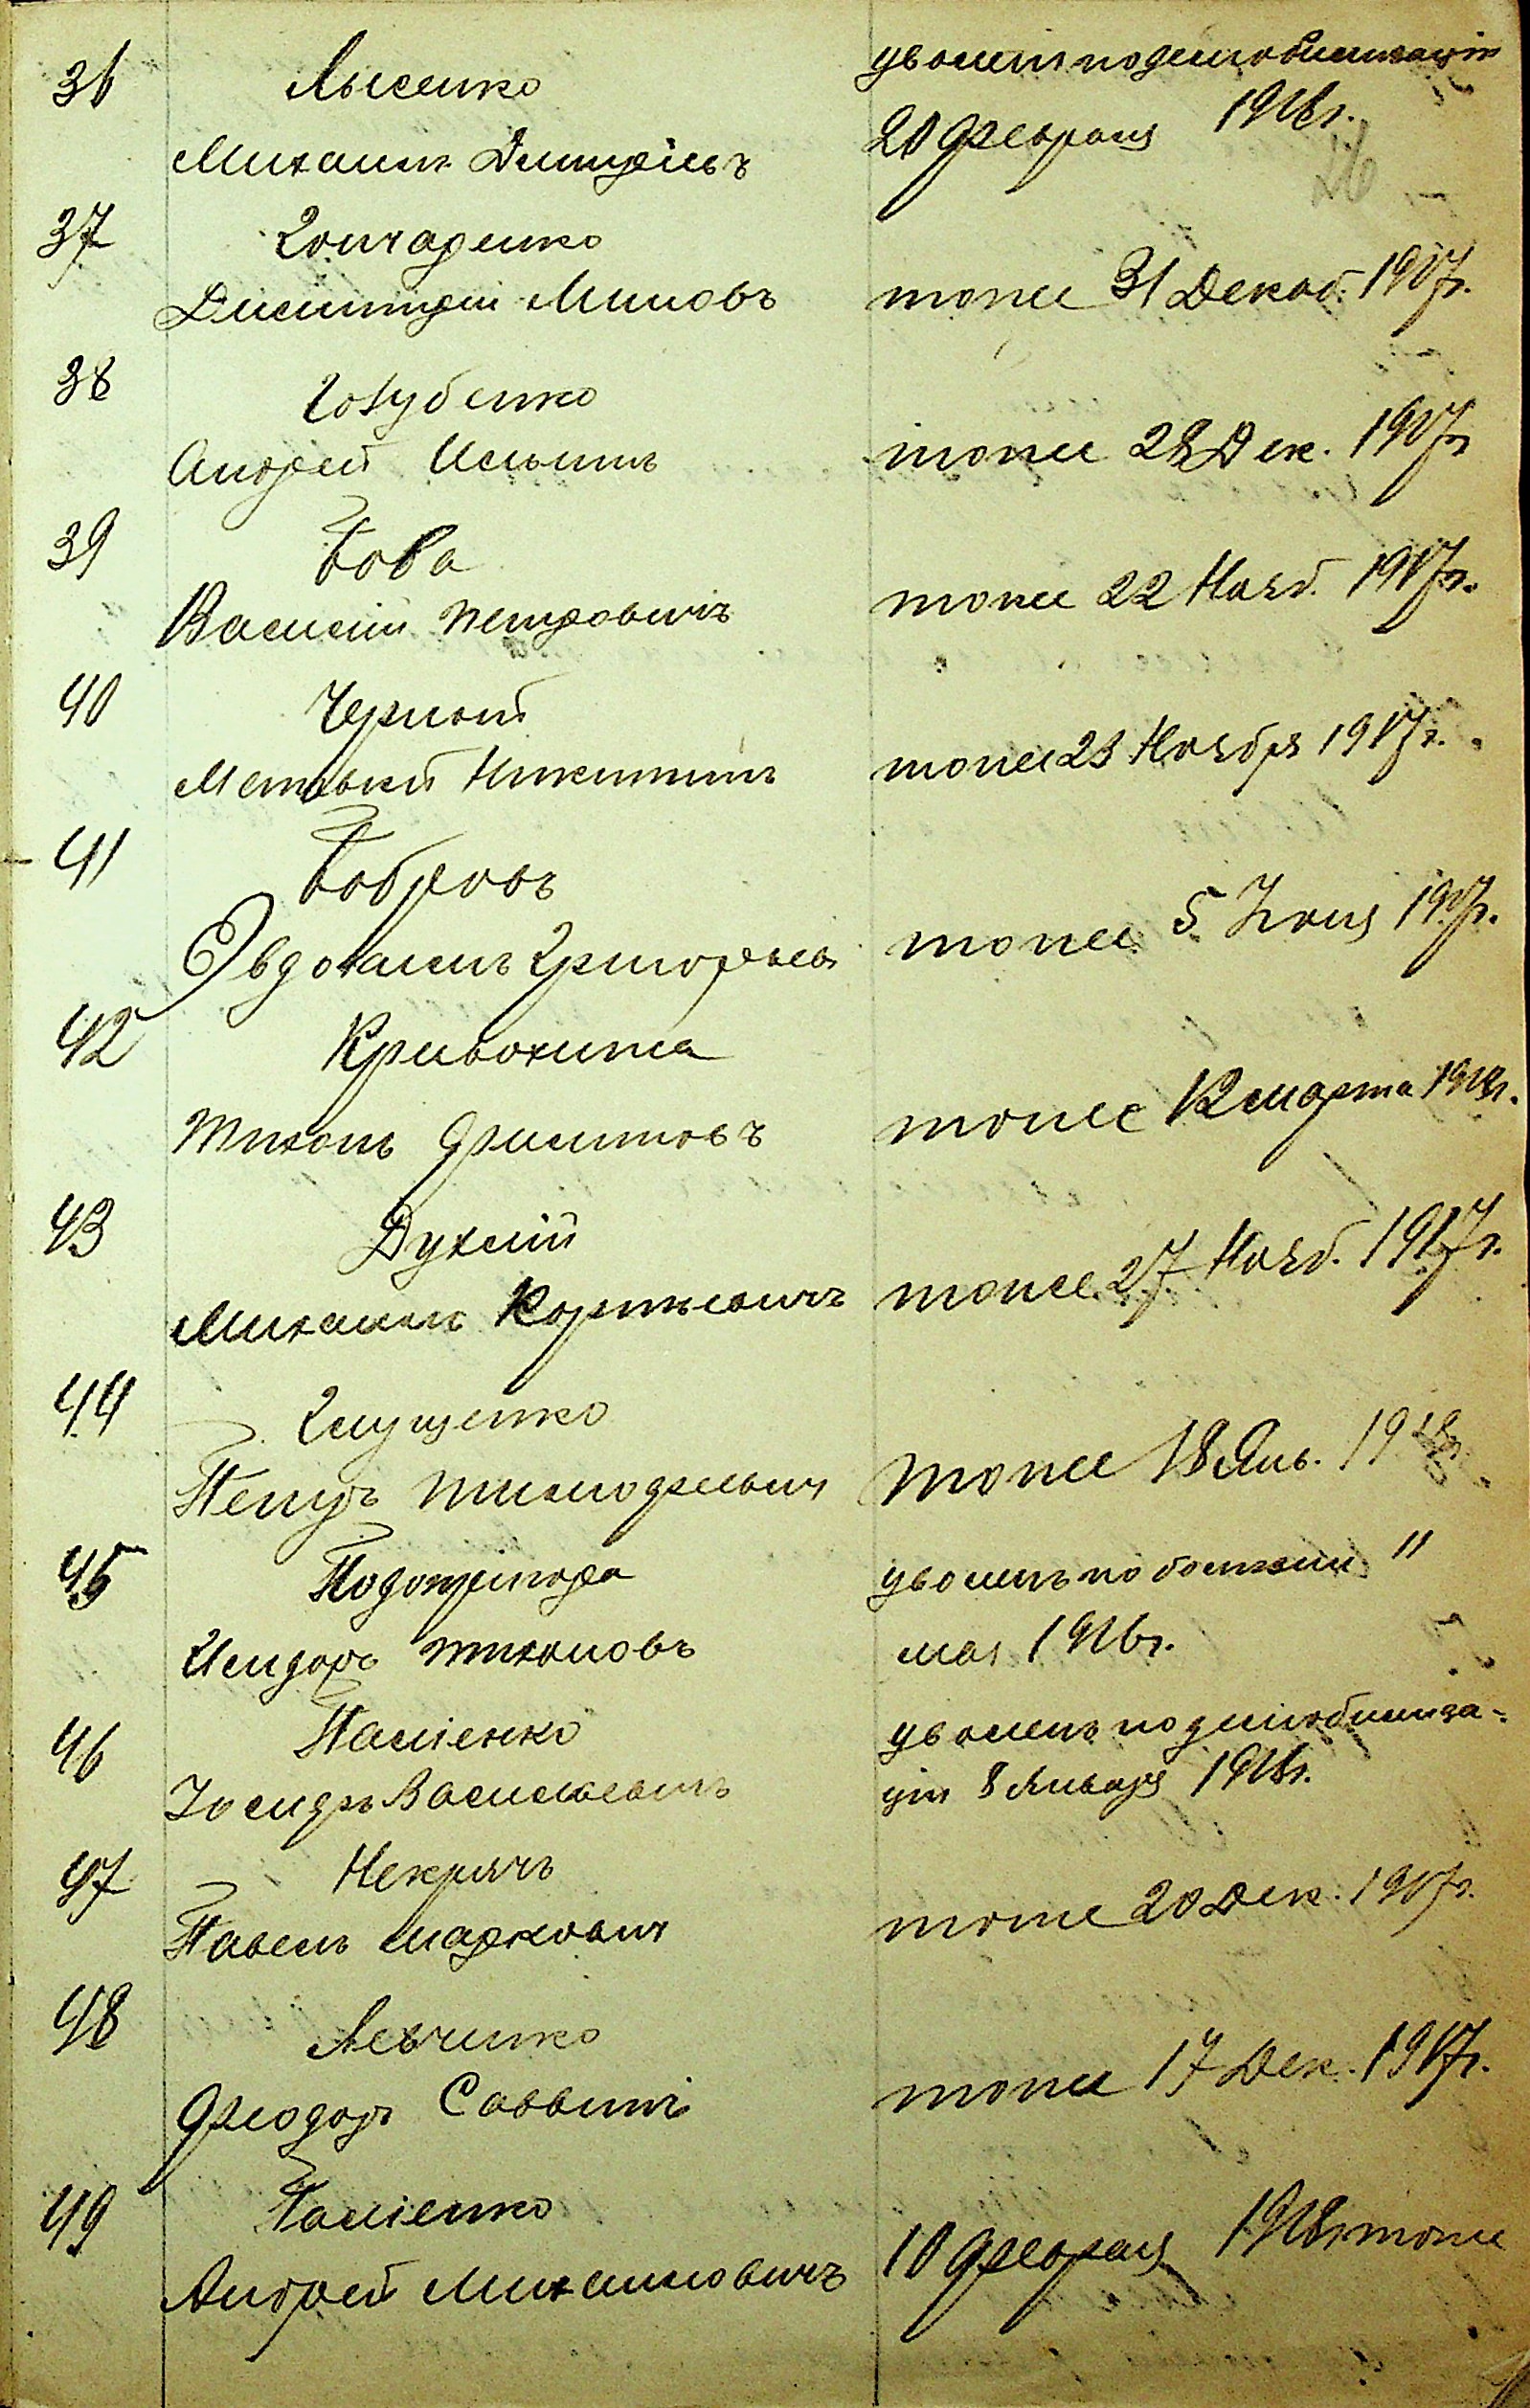 36 Лысенко уволен по демобилизаціи
Михаилъ Дмитріевъ 20 Февраля 1918 г.
26
37 Гончаренко
Дмитрій Миновъ тоже 31 Декаб. 1917 г.
38 Голубенко
Андрей Ильинъ тоже 28 Дек. 1917 г.
39 Бова
Василій Петровичъ тоже 22 Нояб. 1917 г.
40 Черной
Матвей Никитинъ тоже 23 Ноября 1917 г.
41 Бобровъ
Эвдокимъ Григорьев тоже 5 Іюня 1917 г.
42 Кривохита
Тихонъ Филиповъ тоже 12 марта 1918 г.
43 Духній
Михаилъ Корнѣевичъ тоже 27 Нояб. 1917 г.
44 Глущенко
Петръ Тимофеевич тоже 18 Янв. 1918 г.
45 Подопригора уволенъ по болезни "
Исидоръ Тихоновъ мая 1916 г.
46 Паліенко уволенъ по демобилиза-
Василіевичъ ціи 8 Января 1918 г.
47 Некрячъ
Павелъ Маркович тоже 20 Дек. 1917 г.
48 Левченко
Феодоръ Саввичъ тоже 17 Дек. 1917 г.
49 Паліенко
Андрей Михаиловичъ 10 февраля 1918 г. тоже